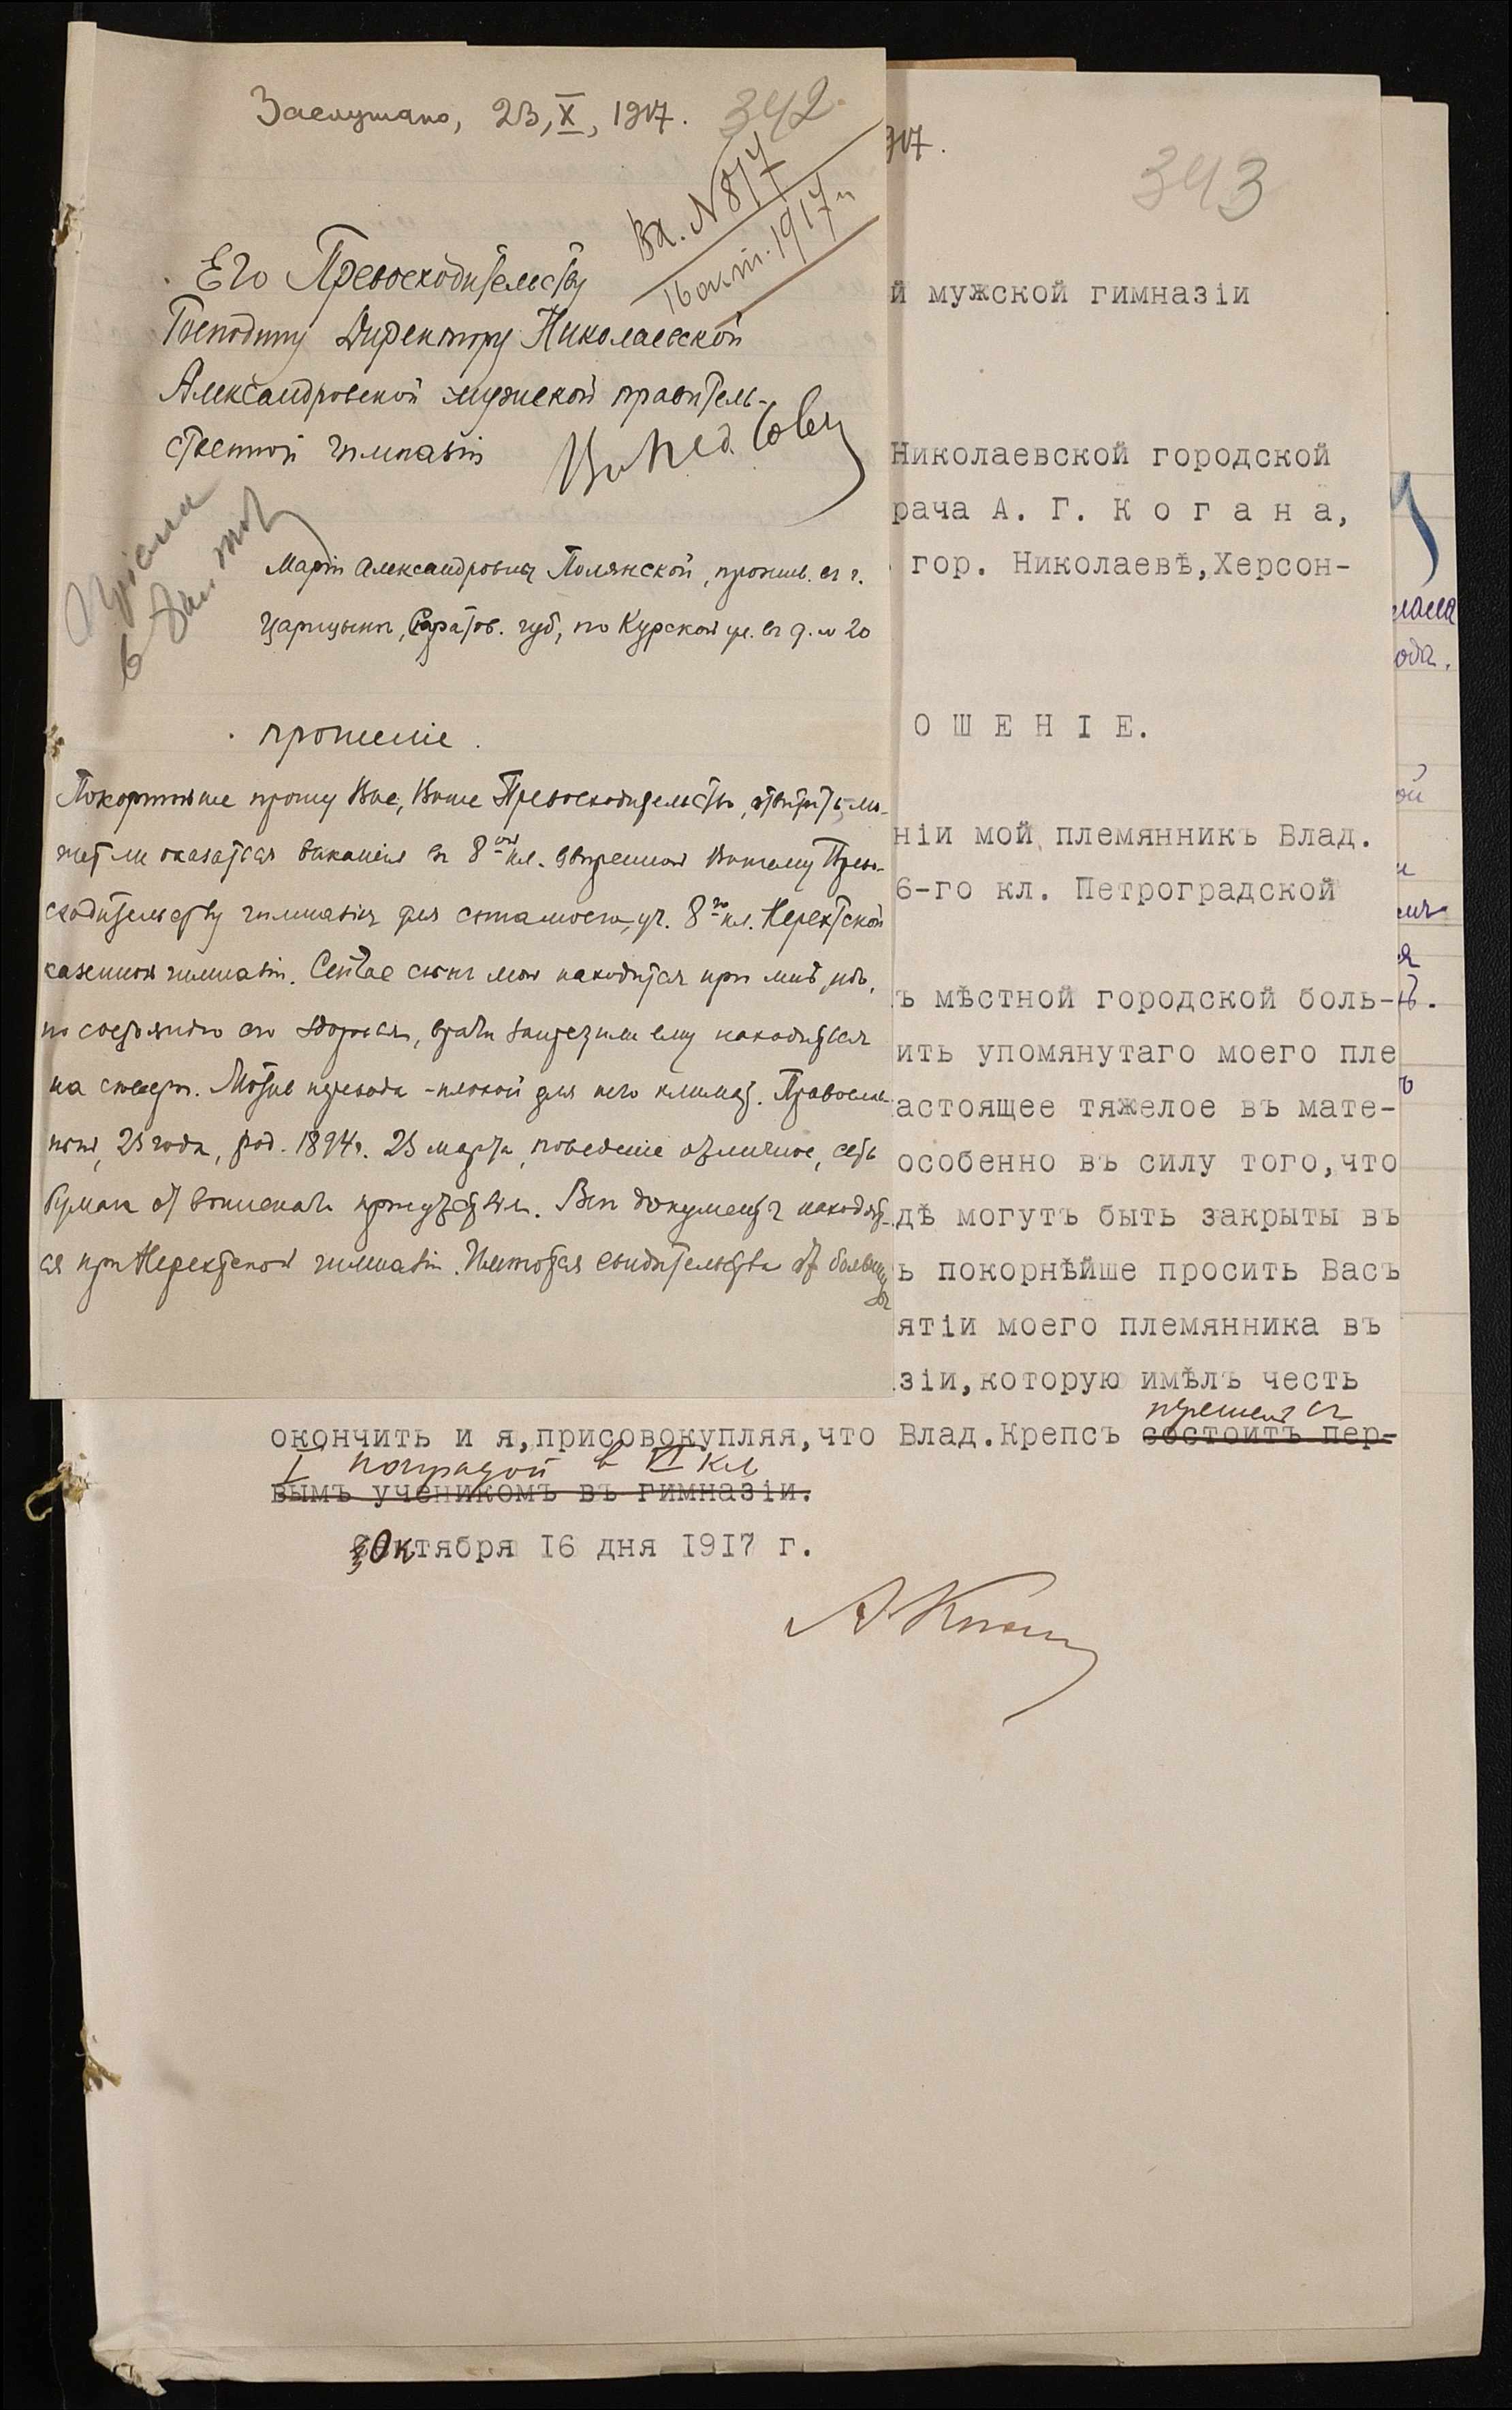 Заслушано, 23, X, 1917. 342.
Вх. N 817
16 окт. 1917 г.
Его Превосходительству
Господину Директору Николаевской
Александровской мужской правитель-
ственной гимназіи
Въ Пед. Совѣт
Маріи Александровны Полянской, прожив. въ г.
Царицынѣ, Саратов. губ., по Курской ул. въ д. № 20
прошеніе.
Покорнѣйше прошу Вас, Ваше Превосходительство, отвѣтить, мо-
жет ли оказаться вакансія въ 8-ой кл. ввѣренной Вашему Прево-
сходительству гимназіи для сына моего, уч. 8-го кл. Нерехтской
казенной гимназіи. Сейчас сынъ мой находится при мнѣ, ибо,
по состоянію его здоровья, врачи запретили ему находиться
на сѣверѣ. Мотив перевода - плохой для него климат. Православ-
ный, 23 года, род. 1894 г. 23 марта, поведеніе отличное, есть
бумага от воинскаго присутствія. Всѣ документы находят-
ся при Нерехтской гимназіи. Имѣются свидѣтельства от больницы
917.
343
й мужской гимназіи
Николаевской городской
рача А. Г. К о г а н а,
гор. Николаевѣ,Херсон-
О Ш Е Н I Е.
ніи мой племянникъ Влад.
6-го кл. Петроградской
ъ мѣстной городской боль-
ить упомянутаго моего пле
астоящее тяжелое въ мате-
особенно въ силу того,что
дѣ могутъ быть закрыты въ
ь покорнѣйше просить Васъ
ятіи моего племянника въ
зіи,которую имѣлъ честь
перешелъ съ
окончить и я,присовокупляя,что Влад.Крепсъ состоитъ пер-
I наградой в VI кл
вымъ ученикомъ въ гимназіи.
Октября 16 дня 1917 г.
А Коган
ода.
ой